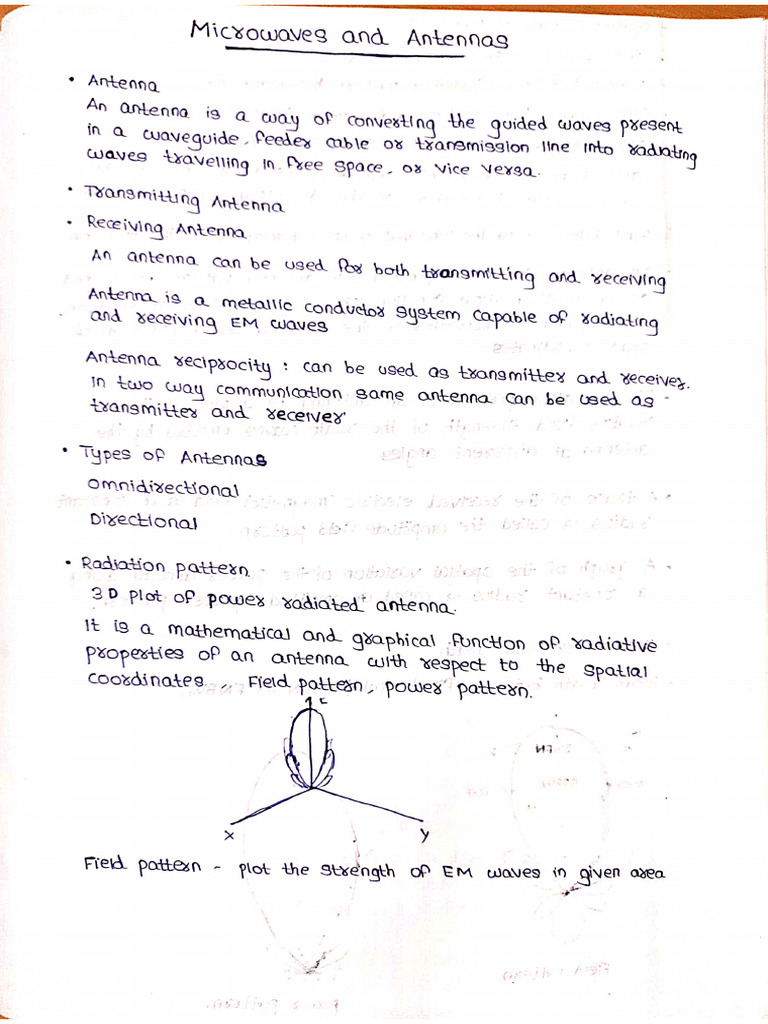 Microwaves and Antennas
• Antenna
An antenna is a way of converting the guided waves present
in a waveguide, feeder cable or transmission line into radiating
waves travelling in free space, or vice versa.
• Transmitting Antenna
• Receiving Antenna
An antenna can be used for both transmitting and receiving
Antenna is a metallic conductor system capable of radiating
and receiving EM waves
Antenna reciprocity : can be used as transmitter and receiver.
In two way communication same antenna can be used as
transmitter and receiver
• Types of Antennas
Omnidirectional
Directional
• Radiation pattern
3D plot of power radiated antenna.
It is a mathematical and graphical function of radiative
properties of an antenna with respect to the spatial
coordinates. Field pattern, power pattern.
X
y
Field pattern - plot the strength of EM waves in given area